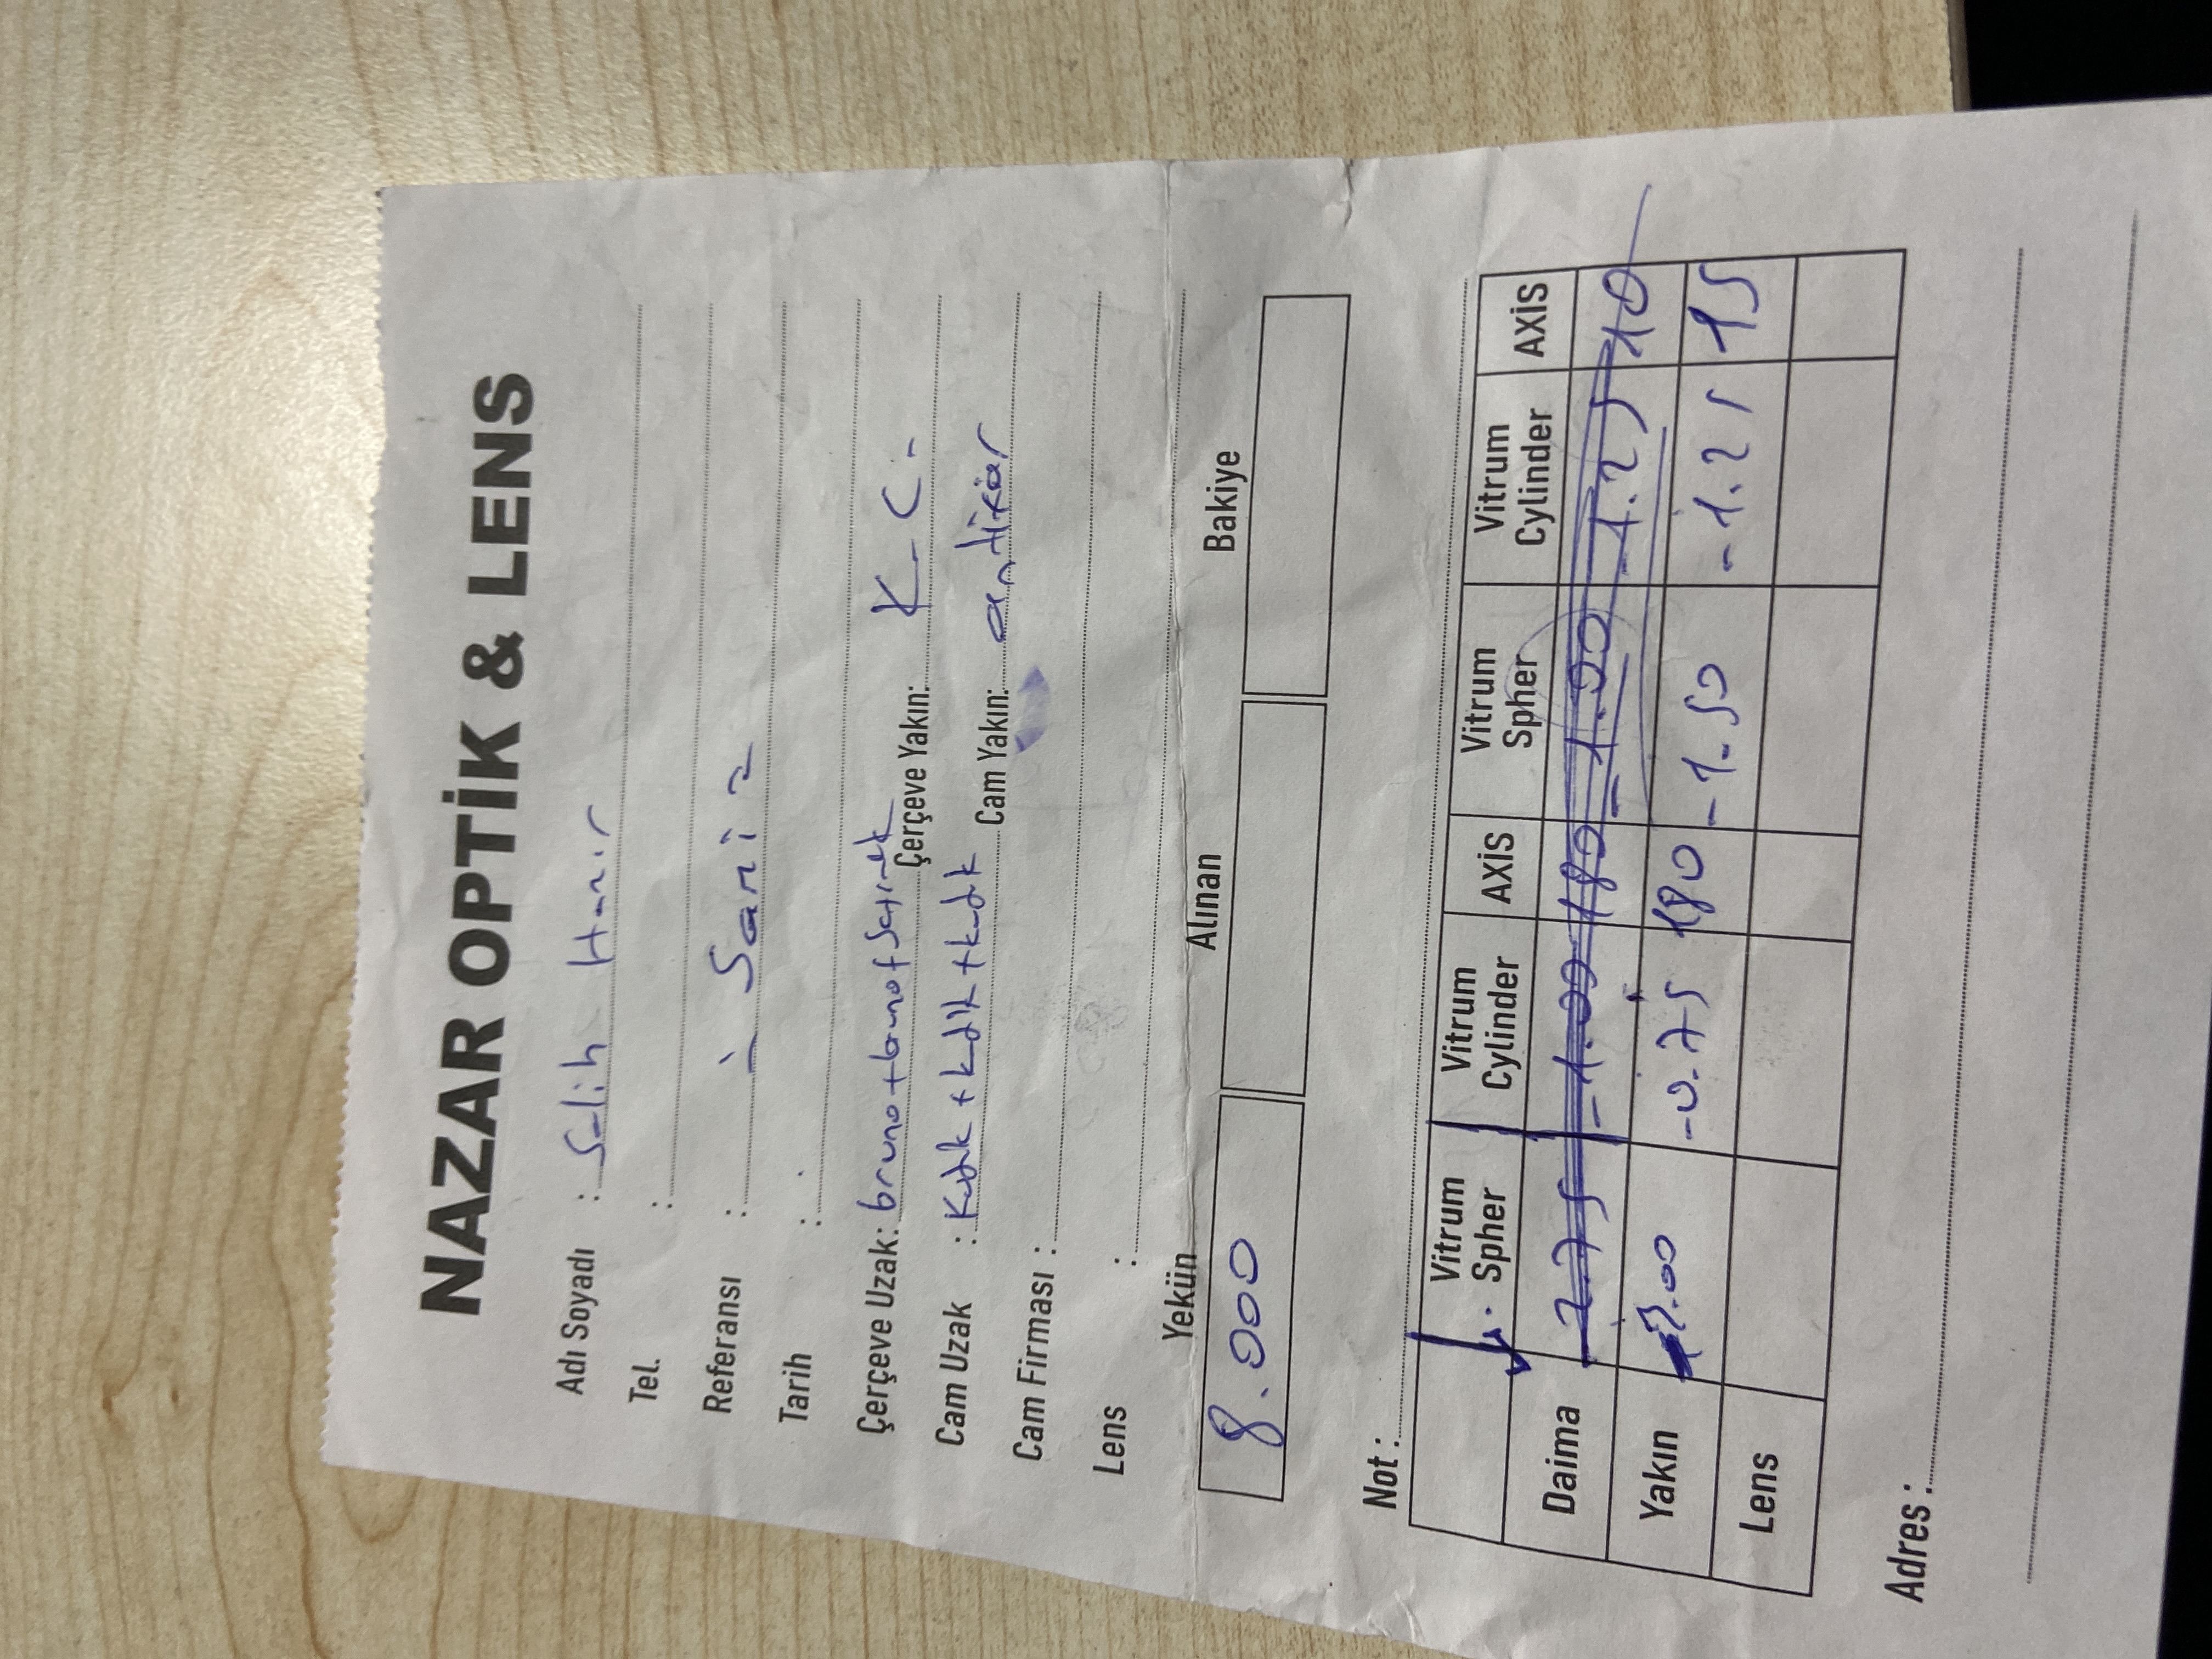 NAZAR OPTİK & LENS
Adı Soyadı : Salih
Tel. :
Referansı : Sami
Tarih :
Çerçeve Uzak: bruno+bruno+ Çerçeve Yakın: K.C.
Cam Uzak : Kodak + kodak + kodak Cam Yakın: antifar
Cam Firması :
Lens :
Yekün Alınan Bakiye
8.000
Not :
Vitrum Spher Vitrum Cylinder AXİS Vitrum Spher Vitrum Cylinder AXİS
Daima 2.75 -1.00 180 -1.00 -1.25 10
Yakın -0.75 180 -1.50 -1.25 15
Lens
Adres :